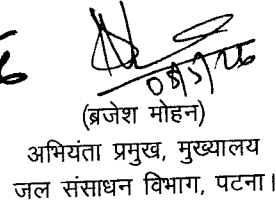 08/5/26
(ब्रजेश मोहन)
अभियंता प्रमुख, मुख्यालय
जल संसाधन विभाग, पटना।